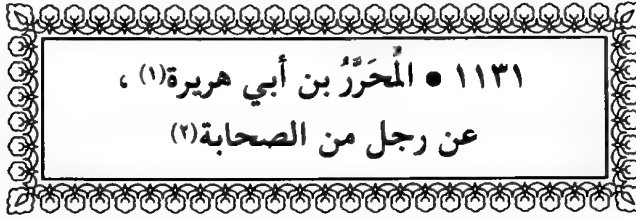 ١١٣١ • الْمُحَرَّرُ بن أبي هريرة(١) ،
عن رجل من الصحابة(٢)